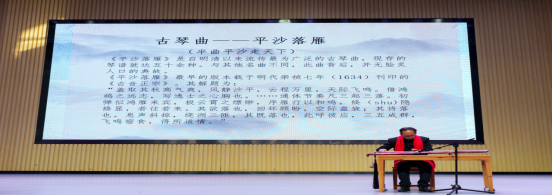 古琴曲——平沙落雁
（半曲平沙走天下）
《平沙落雁》是自明清以来流传最为广泛的古琴曲，现存的
琴谱就达五十余种。与其他名曲不同，此曲背后，并无脍炙
人口的典故。
《平沙落雁》最早的版本载于明代崇祯七年（1634）刊印的
《古音正宗》。其解题为：
“盖取其秋高气爽，风静沙平，云程万里，天际飞鸣。借鸿
鹄之远志，写逸士之心胸也。……通体节奏凡三起三落。初
弹似鸿雁来宾，极云霄之缥缈，序雁行以和鸣，倏（shū）隐
倏显，若往若来。其欲落也，回环顾盼，空际盘旋；其将落
也，息声斜掠，绕洲三匝；其既落也，此呼彼应，三五成群，
飞鸣宿食，得所适情。”